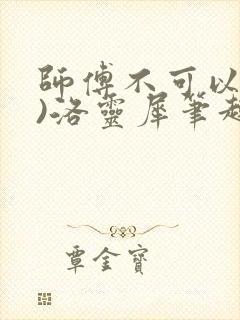 師傅不可以
)洛靈犀筆趣
覃金寶